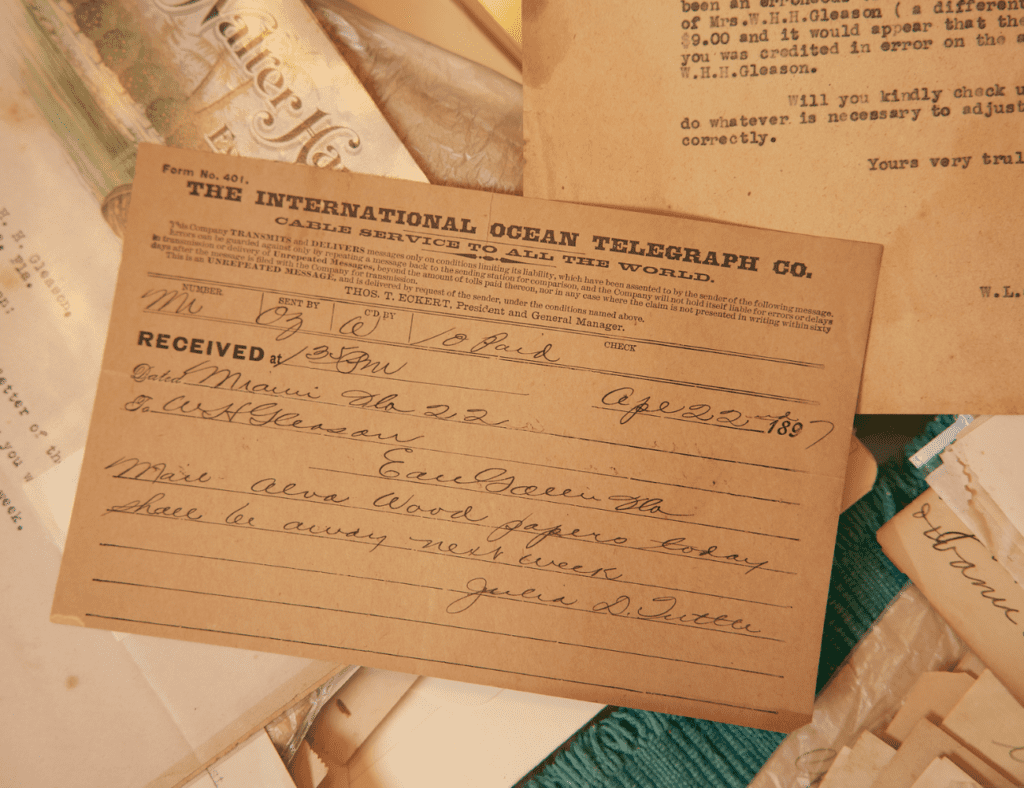 Walter Ha
been an erroneous
of Mrs.W.H.H.Gleason ( a different
$9.00 and it would appear that the
you was credited in error on the
W.H.H.Gleason.
Will you kindly check u
do whatever is necessary to adjust
correctly.
Yours very trul
W.L.
H. H. Gleason,
Fla.
etter of th
you w
week.
Form No. 401.
THE INTERNATIONAL OCEAN TELEGRAPH CO.
CABLE SERVICE TO ALL THE WORLD.
This Company TRANSMITS and DELIVERS messages only on conditions limiting its liability, which have been assented to by the sender of the following message.
Errors can be guarded against only by repeating a message back to the sending station for comparison, and the Company will not hold itself liable for errors or delays
in transmission or delivery of Unrepeated Messages, beyond the amount of tolls paid thereon, nor in any case where the claim is not presented in writing within sixty
days after the message is filed with the Company for transmission.
This is an UNREPEATED MESSAGE, and is delivered by request of the sender, under the conditions named above.
THOS. T. ECKERT, President and General Manager.
NUMBER SENT BY C'D BY CHECK
10 Paid
RECEIVED at
Apl 22 1897
Dated Miami Fla 22
To W H Gleason
Eau Gallie Fla
Mail Alva Wood papers today
shall be away next week
Julia D. Tuttle